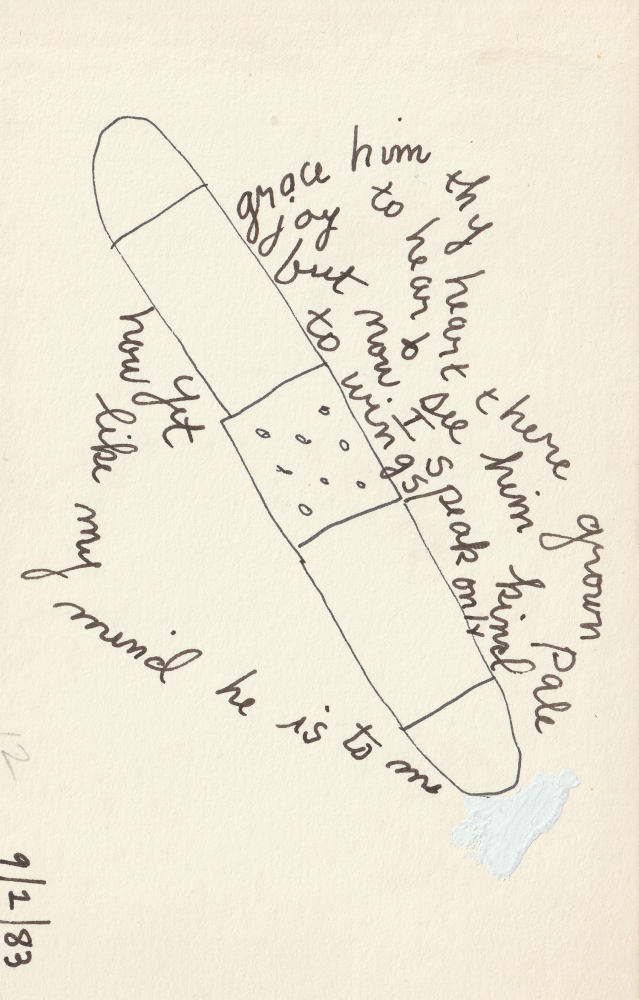 grace him thy heart there grown Pale
joy to hear & see him kind
but now I speak only
to wings
how yet like my mind he is to me
12
9/2/83